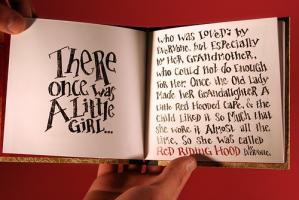 There
once was
A Little
GIRL...
who was Loved by
Everyone, but Especially
by Her Grandmother,
who Could Not do Enough
For Her. Once the Old Lady
Made Her Grandaughter A
Little Red Hooded Cape, & the
Child Liked it So Much that
She wore it Almost all the
time, So she was called
RED RIDING HOOD by Everyone.